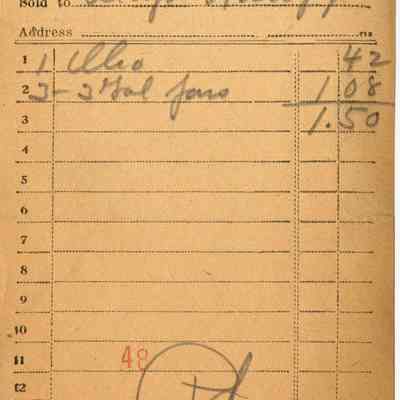 Sold to
Address
1 1 42
2 3 - 3 Gal Jars 1 08
3 1.50
4
5
6
7
8
9
10
11
48
12